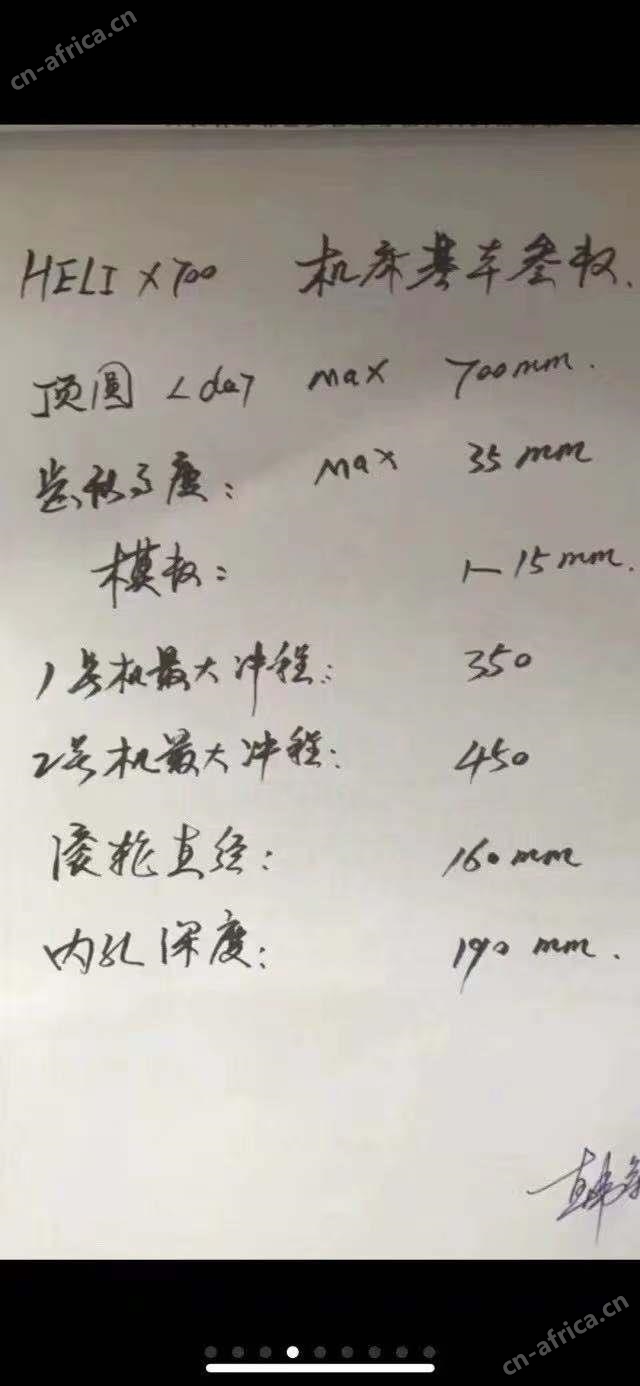 cn-africa.cn
HELIX700 机床基本参数.
顶圆<da> max 700mm.
齿部高度: max 35mm
模数: 1-15mm.
1号机最大冲程: 350
2号机最大冲程: 450
滚轮直径: 160mm
内孔深度: 190mm.
韩
cn-africa.cn